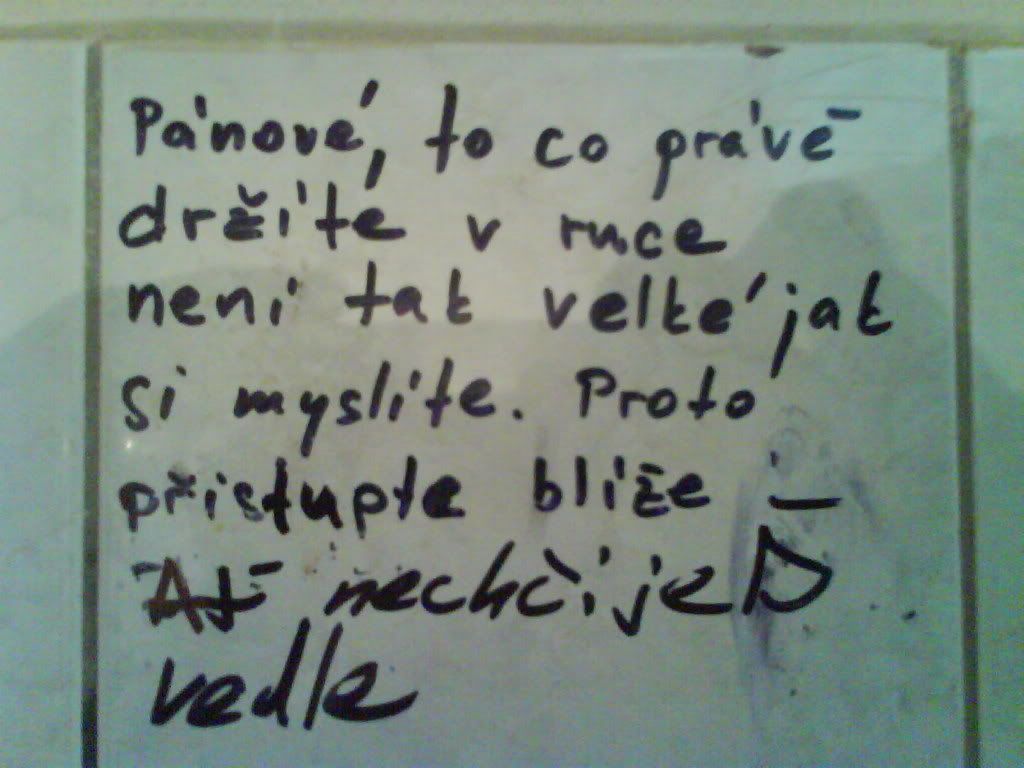 Pánové, to co právě
držíte v ruce
není tak velké jak
si myslíte. Proto
přistupte blíže –
Ať nechčiješ
vedle